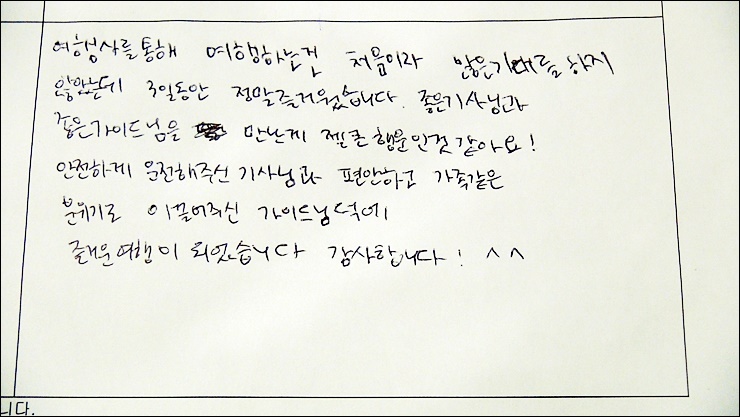 여행사를 통해 여행하는건 처음이라 많은기대를 하지
않았는데 3일동안 정말즐거웠습니다. 좋은기사님과
좋은가이드님을 만난게 젤큰행운인것 같아요!
안전하게 운전해주신 기사님과 편안하고 가족같은
분위기로 이끌어주신 가이드님덕에
즐거운여행이 되었습니다 감사합니다! ^^
니다.